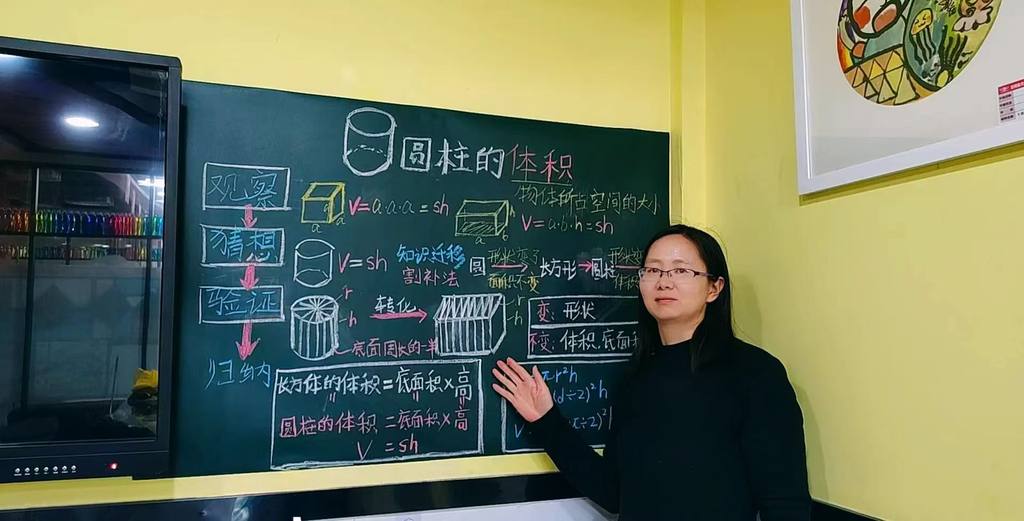 圆柱的体积
观察
V=a·a·a=sh
a
a
物体所占空间的大小
h
a
b
V=a·b·h=sh
猜想
V=sh
知识迁移
割补法
圆
形状变了
面积不变
长方形
圆柱
形状变
体积
验证
r
h
转化
r
h
底面周长的一半
变：形状
不变：体积.底面积
归纳
长方体的体积=底面积×高
圆柱的体积=底面积×高
V=sh
πr²h
(d÷2)²h
V
÷2)²